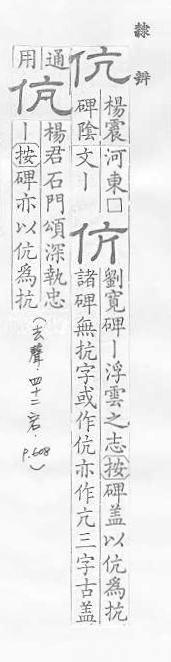 隸辨
伉
楊震
碑陰
河東□
文丨
伉
劉寬碑丨浮雲之志按碑盖以伉爲抗
諸碑無抗字或作伉亦作亢三字古盖
通
用
伉
楊君石門頌深執忠
丨按碑亦以伉爲抗
(去聲．四十二宕．P.608)